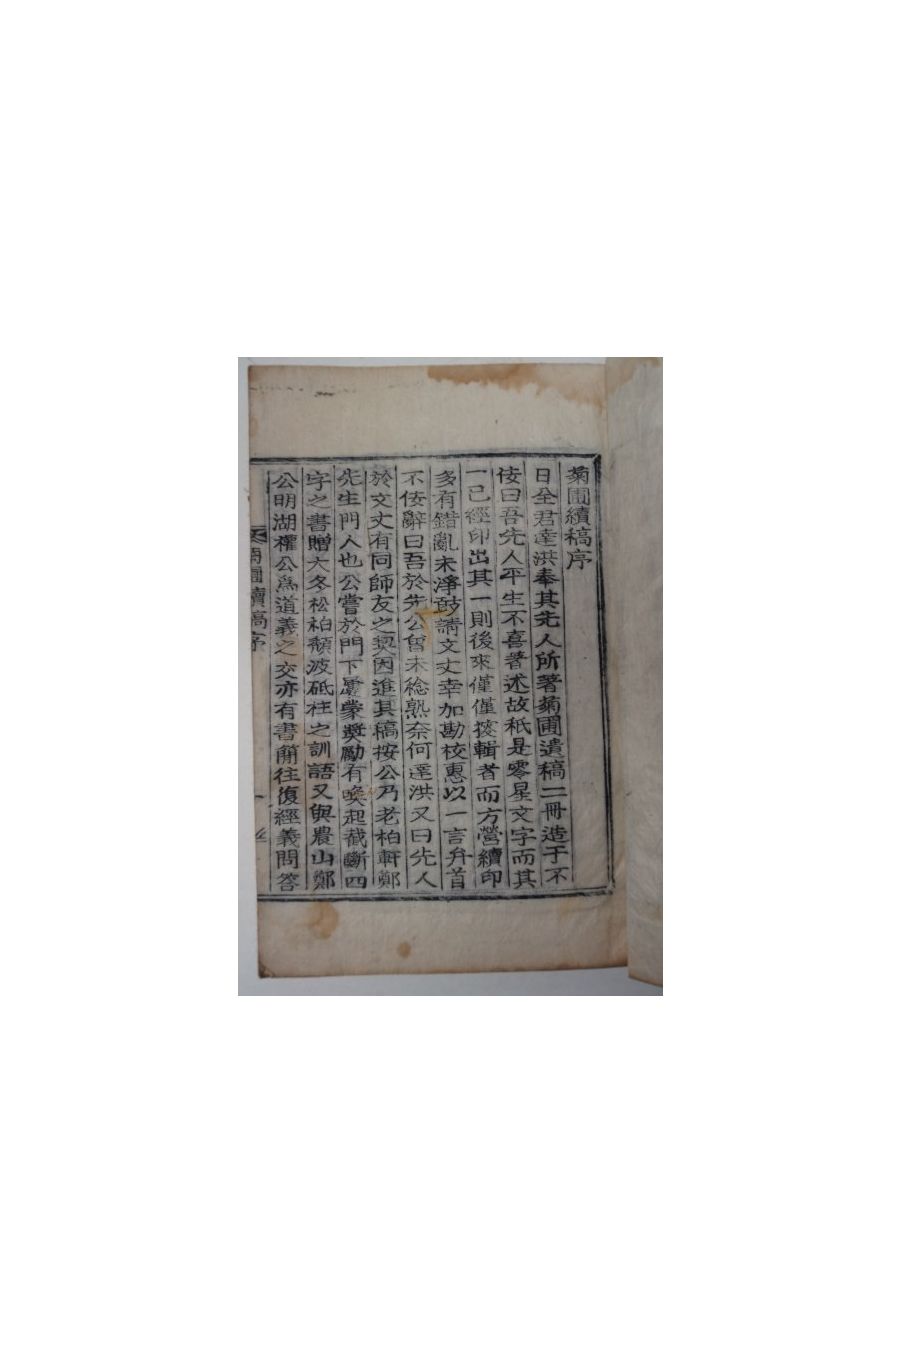 菊圃續稿序
日全君達洪奉其先人所著菊圃遺稿二冊造于不
佞曰吾先人平生不喜著述故秪是零星文字而其
一已經印出其一則後來僅僅搜輯者而方營續印
多有錯亂未淨敢請文丈幸加勘校惠以一言弁首
不佞辭曰吾於先公曾未稔熟奈何達洪又曰先人
於文丈有同師友之契因進其稿按公乃老柏軒鄭
先生門人也公嘗於門下屢蒙奬勵有喚起截斷四
字之書贈大冬松柏頹波砥柱之訓語又與農山鄭
公明湖權公爲道義之交亦有書簡往復經義問答
菊圃續稿序 一